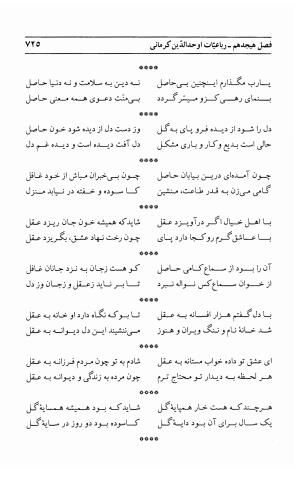 فصل هیجدهم ـ رباعیّات اوحدالدّین کرمانی ۷۳۵
****
یارب مگذارم اینچنین بی‌حاصل نه دین به سلامت و نه دنیا حاصل
بنمای رهی کزو میسّر گردد بی‌منّت دعوی همه معنی حاصل
****
دل را شود از دیده فرو پای به گل وز دست دل از دیده شود خون حاصل
حالی است بدیع و کار و باری مشکل دل آفت دیده است و دیده غم دل
****
چون آمده‌ای درین بیابان حاصل چون بی‌خبران مباش از خود غافل
گامی می‌زن به قدر طاعت، منشین کا سوده و خفته در نیابد منزل
****
با اهل خیال اگر درآویزد عقل شاید که همیشه خون جان ریزد عقل
با عاشق گرم رو کجا دارد پای چون رخت نهاد عشق، بگریزد عقل
****
آن را بود از سماع کامی حاصل کو هست زجان به نزد جانان غافل
از خوان سماع کس نواله نبرد تا بر ناید زعقل و زجان وز دل
****
با دل گفتم هزار افسانه به عقل تا بو که نگاه دارد او خانه به عقل
شد خانهٔ نام و ننگ ویران و هنوز می‌ننشیند این دل دیوانه به عقل
****
ای عشق تو داده خواب مستانه به عقل شادم به تو چون مردم فرزانه به عقل
هر لحظه به دیدار تو محتاج ترم چون مرده به زندگی و دیوانه به عقل
****
هرچند که هست خار همپایهٔ گل شاید که بود همیشه همسایهٔ گل
یک سال برای آن بود دایهٔ گل کاسوده بود دو روز در سایهٔ گل
****